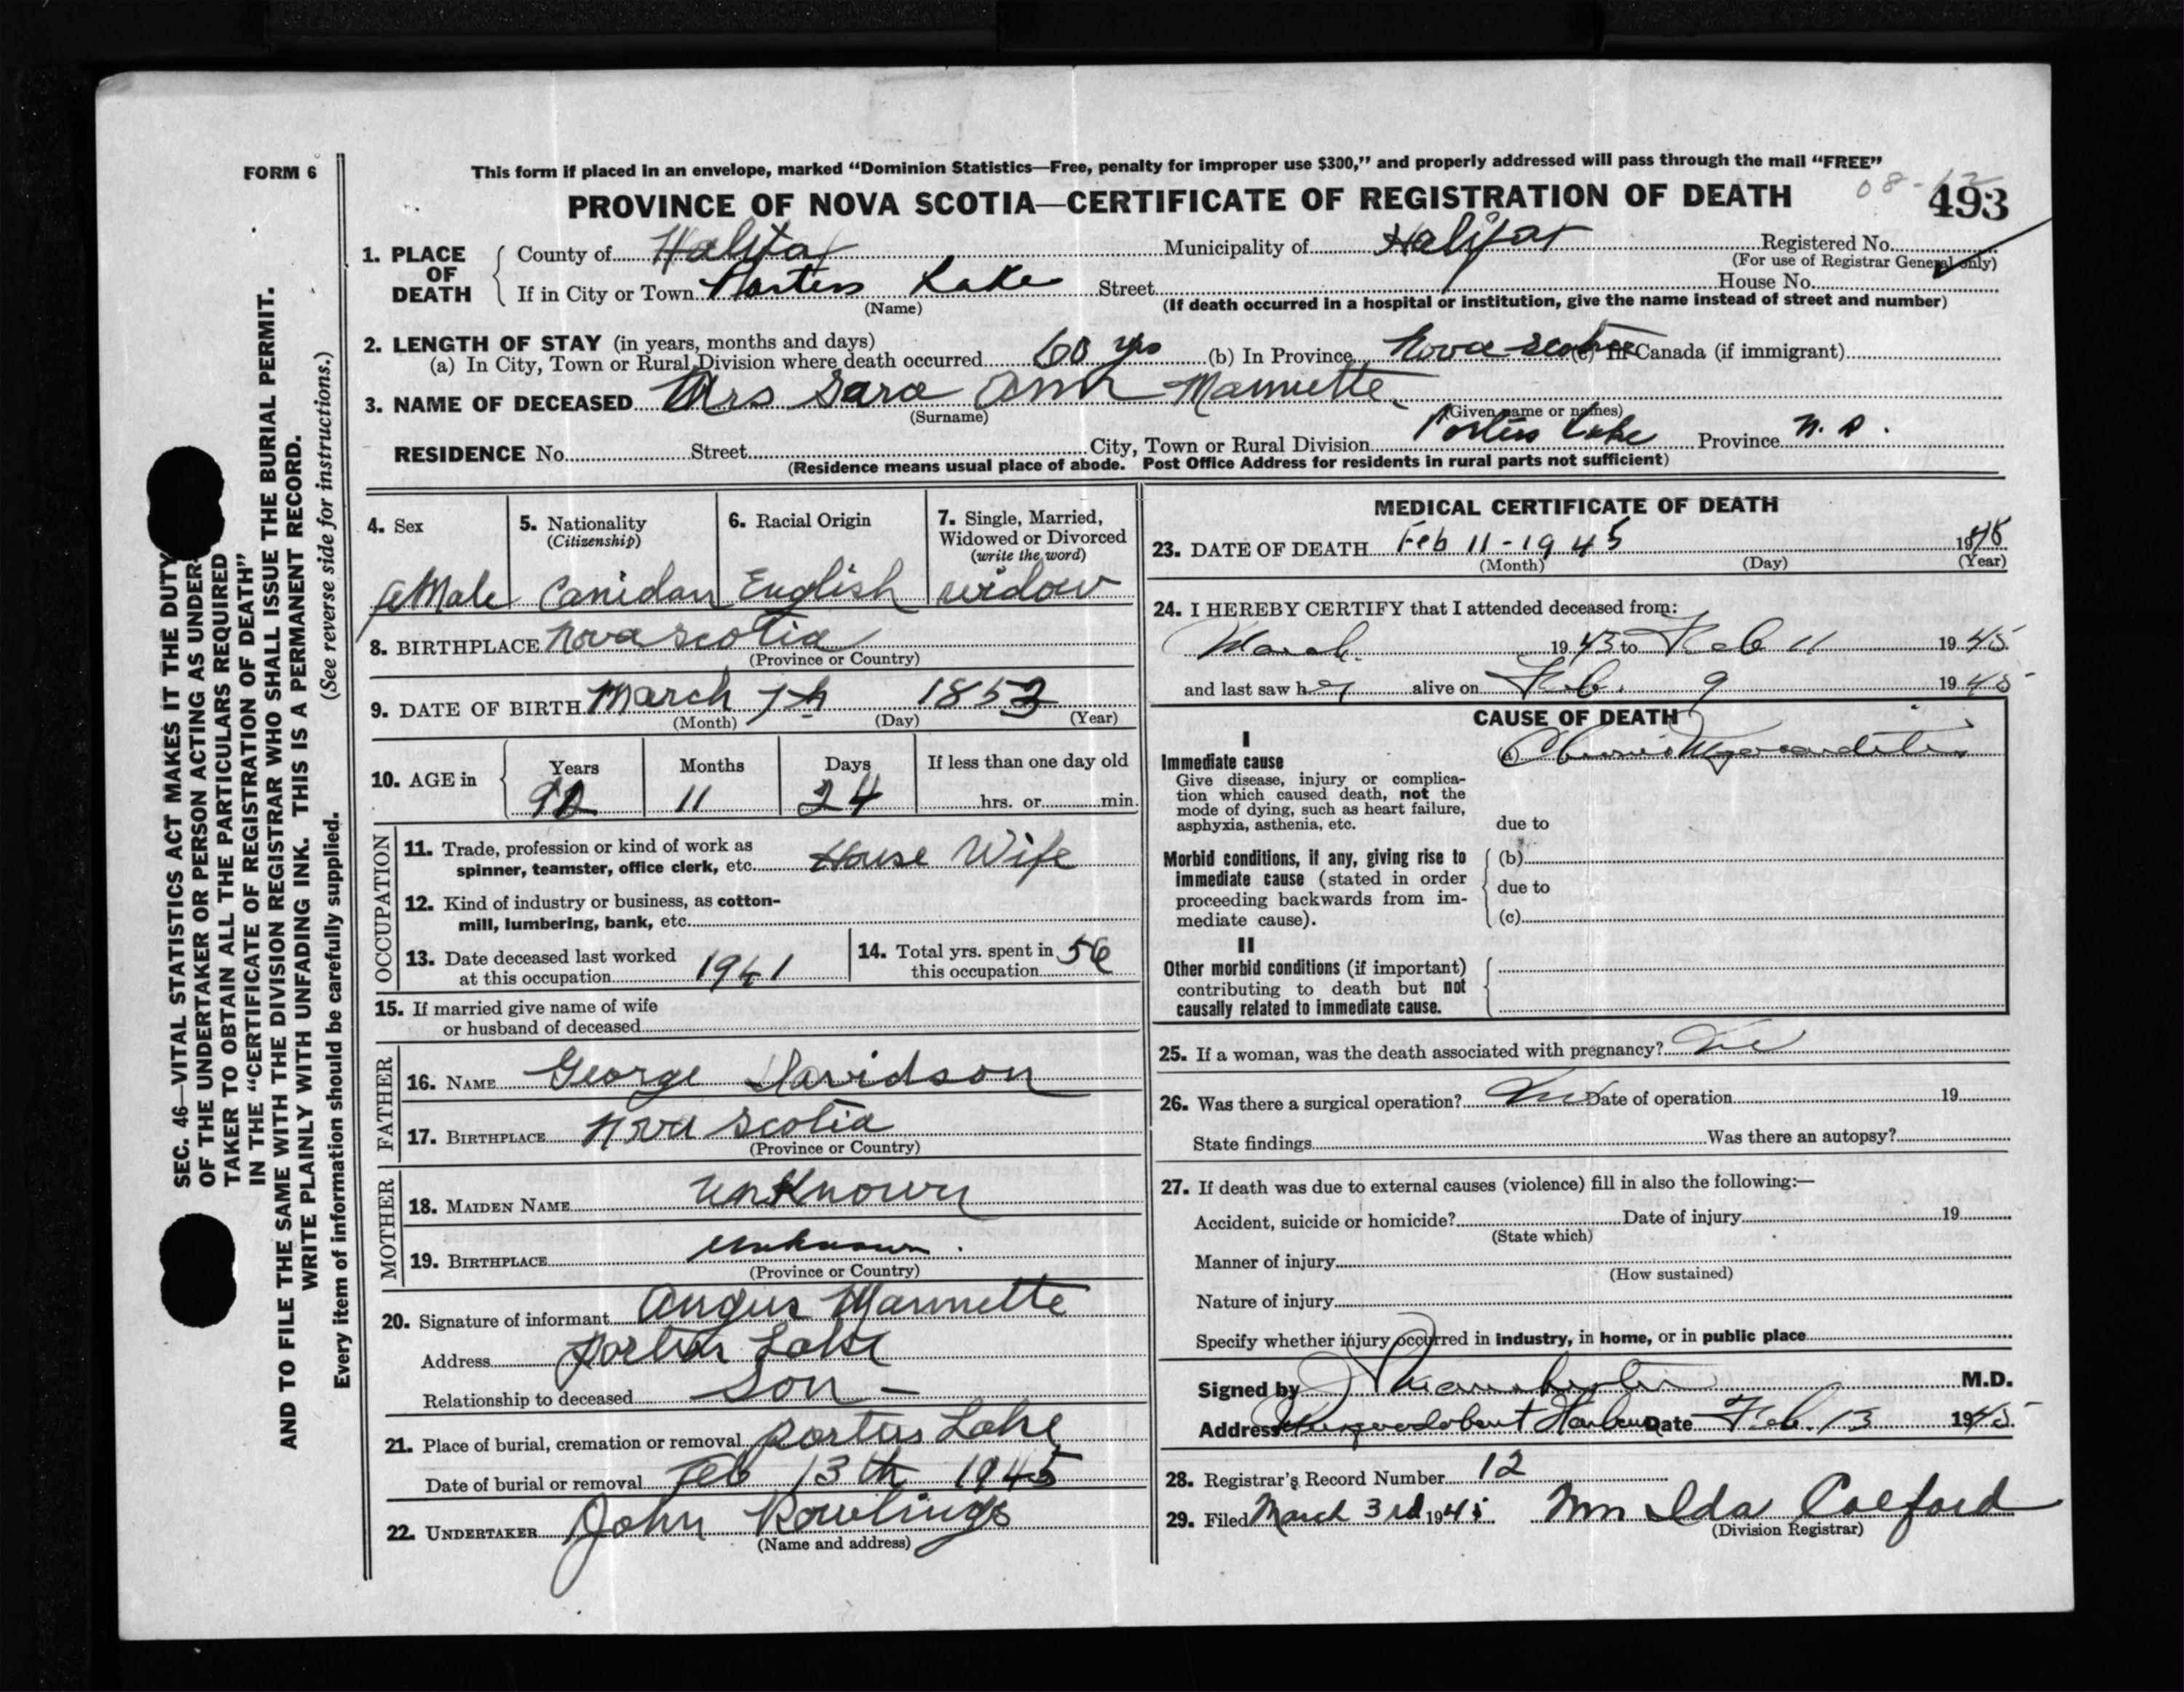 FORM 6
This form if placed in an envelope, marked “Dominion Statistics—Free, penalty for improper use $300,” and properly addressed will pass through the mail “FREE”
PROVINCE OF NOVA SCOTIA—CERTIFICATE OF REGISTRATION OF DEATH
08-12
493
1. PLACE OF DEATH
County of Halifax Municipality of Halifax Registered No.
(For use of Registrar General only)
If in City or Town Porters Lake Street House No.
(Name) (If death occurred in a hospital or institution, give the name instead of street and number)
2. LENGTH OF STAY (in years, months and days)
(a) In City, Town or Rural Division where death occurred 60 yrs (b) In Province Nova Scotia (c) In Canada (if immigrant)
3. NAME OF DECEASED Mrs Sara Ann Mannette
(Surname) (Given name or names)
RESIDENCE No. Street City, Town or Rural Division Porters Lake Province N.S.
(Residence means usual place of abode. Post Office Address for residents in rural parts not sufficient)
4. Sex
feMale
5. Nationality
(Citizenship)
Canidan
6. Racial Origin
English
7. Single, Married,
Widowed or Divorced
(write the word)
widow
8. BIRTHPLACE Nova Scotia
(Province or Country)
9. DATE OF BIRTH March 7th 1852
(Month) (Day) (Year)
10. AGE in
Years Months Days If less than one day old
92 11 24 hrs. or min.
OCCUPATION
11. Trade, profession or kind of work as
spinner, teamster, office clerk, etc. House Wife
12. Kind of industry or business, as cotton-
mill, lumbering, bank, etc.
13. Date deceased last worked
at this occupation 1941
14. Total yrs. spent in
this occupation 56
15. If married give name of wife
or husband of deceased
FATHER
16. NAME George Davidson
17. BIRTHPLACE Nova Scotia
(Province or Country)
MOTHER
18. MAIDEN NAME unKnown
19. BIRTHPLACE unknown.
(Province or Country)
20. Signature of informant Angus Mannette
Address Porters Lake
Relationship to deceased Son -
21. Place of burial, cremation or removal Porters Lake
Date of burial or removal Feb 13th 1945
22. UNDERTAKER John Rowlings
(Name and address)
MEDICAL CERTIFICATE OF DEATH
23. DATE OF DEATH Feb 11-1945 1945
(Month) (Day) (Year)
24. I HEREBY CERTIFY that I attended deceased from:
March 1943 to Feb 11 1945
and last saw her alive on Feb. 9 1945
CAUSE OF DEATH
I
Immediate cause
Give disease, injury or complica-
tion which caused death, not the
mode of dying, such as heart failure,
asphyxia, asthenia, etc.
(a) Chronic Myocarditis
due to
Morbid conditions, if any, giving rise to
immediate cause (stated in order
proceeding backwards from im-
mediate cause).
(b)
due to
(c)
II
Other morbid conditions (if important)
contributing to death but not
causally related to immediate cause.
25. If a woman, was the death associated with pregnancy? No
26. Was there a surgical operation? No Date of operation 19
State findings Was there an autopsy?
27. If death was due to external causes (violence) fill in also the following:—
Accident, suicide or homicide? Date of injury 19
(State which)
Manner of injury
(How sustained)
Nature of injury
Specify whether injury occurred in industry, in home, or in public place
Signed by M.D.
Address Musquodoboit Harbour Date Feb. 13 1945
28. Registrar's Record Number 12
29. Filed March 3rd 1945 Ida
(Division Registrar)
SEC. 46—VITAL STATISTICS ACT MAKES IT THE DUTY
OF THE UNDERTAKER OR PERSON ACTING AS UNDER-
TAKER TO OBTAIN ALL THE PARTICULARS REQUIRED
IN THE “CERTIFICATE OF REGISTRATION OF DEATH”
AND TO FILE THE SAME WITH THE DIVISION REGISTRAR WHO SHALL ISSUE THE BURIAL PERMIT.
WRITE PLAINLY WITH UNFADING INK. THIS IS A PERMANENT RECORD.
Every item of information should be carefully supplied. (See reverse side for instructions.)